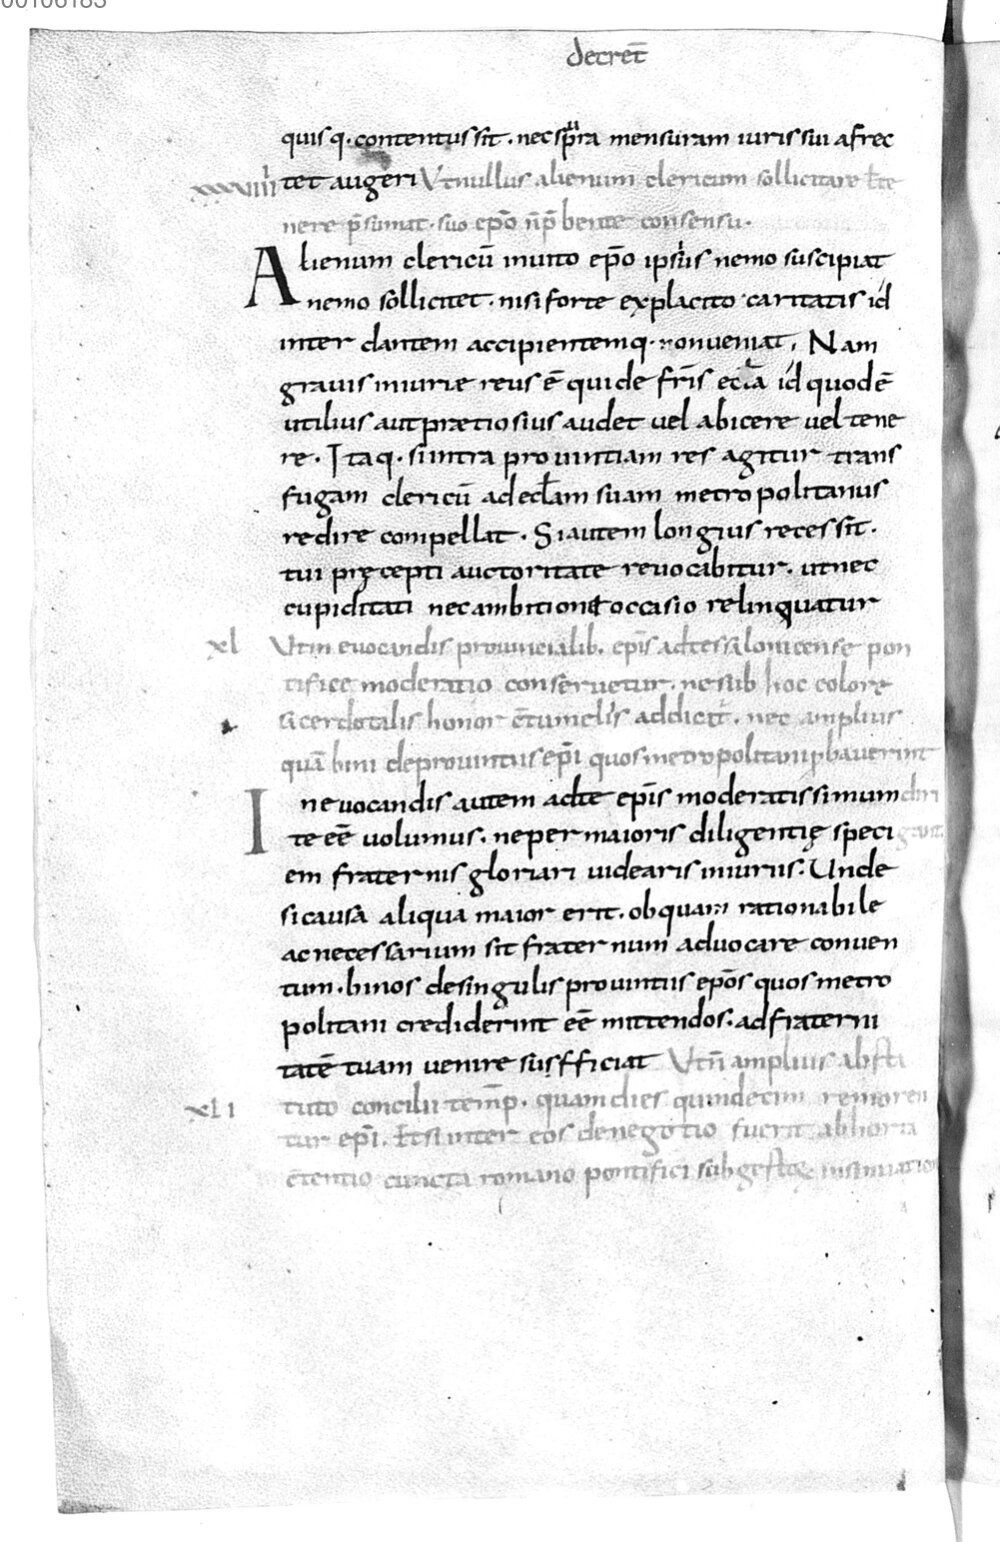 00106183
decret̄
quisq· contentus sit · nec sp̄ra mensuram iuris sui afrec
xxxviiii tet augeri Vt nullus alienum clericum sollicitare ł te
nere p̄sumat· suo ep̄o n̄ p̄bente consensu·
Alienum clericū inuito ep̄o ipsius nemo suscipiat
nemo sollicitet · nisi forte ex placito caritatis id
inter dantem accipientemq· conueniat, Nam
grauis iniurie reus ē qui de fr̄is ec̄la id quod ē
utilius aut prætiosius audet uel abicere uel tene
re · Itaq· si intra prouintiam res agitur trans
fugam clericū ad ecłam suam metropolitanus
redire compellat · Si autem longius recessit ·
tui pręcepti auctoritate reuocabitur · ut nec
cupiditati nec ambitioni occasio relinquatur
xl Vt in euocandis prouincialib· ep̄is ad tessalonicense pon
tifice moderatio conseruetur · ne sub hoc colore
sacerdotalis honor c̄tumeliis addicat̄ · nec amplius
quā bini de prouintiis ep̄i quos metropolitani p̄bauerint
In euocandis autem ad te ep̄is moderatissimum diri
te eē uolumus · ne per maioris diligentię speci gant̄
em fraternis gloriari uidearis iniuriis · Unde
si causa aliqua maior erit · ob quam rationabile
ac necessarium sit fraternum aduocare conuen
tum · binos de singulis prouintiis ep̄os quos metro
politani crediderint eē mittendos · ad fraterni
tatē tuam uenire sufficiat Vt n̄ amplius absta
xli tuto concilii temp̄· quam dies quindecim remoren
tur ep̄i · Et si inter eos de negotio fuerit abhorta
c̄tentio cuncta romano pontifici sub gestoꝝ insinuatio